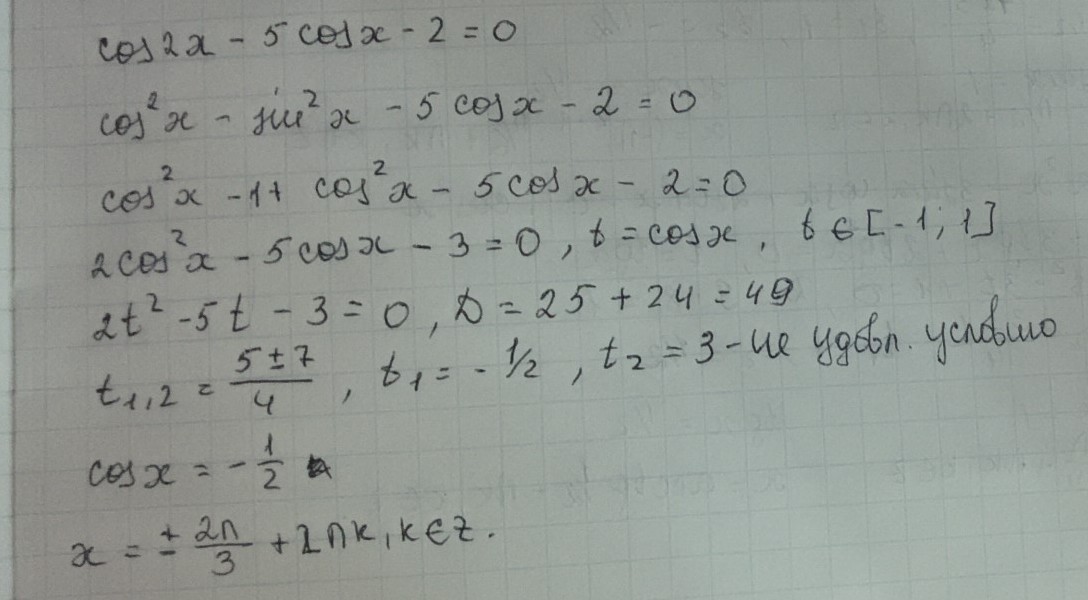 cos2x - 5cosx - 2 = 0
cos²x - sin²x - 5cosx - 2 = 0
cos²x - 1 + cos²x - 5cosx - 2 = 0
2cos²x - 5cosx - 3 = 0, t = cosx, t ∈ [-1; 1]
2t² - 5t - 3 = 0, D = 25 + 24 = 49
t₁,₂ = (5 ± 7)/4, t₁ = -1/2, t₂ = 3 - не удовл. условию
cosx = -1/2
x = ± 2π/3 + 2πk, k ∈ Z.